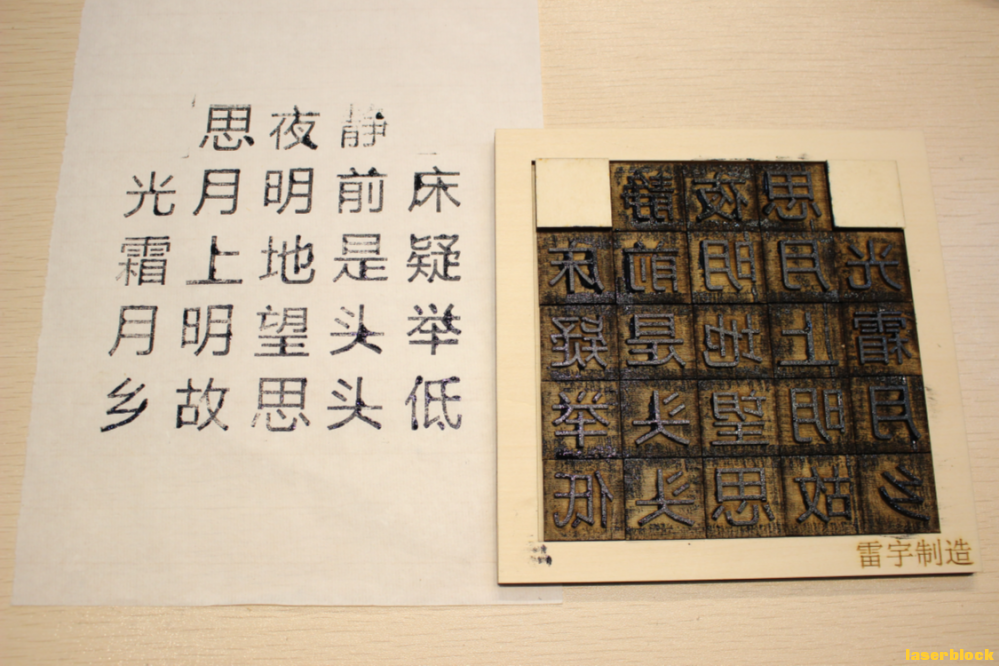 静夜思
床前明月光
疑是地上霜
举头望明月
低头思故乡
静夜思
床前明月光
疑是地上霜
举头望明月
低头思故乡
雷宇制造
laserblock